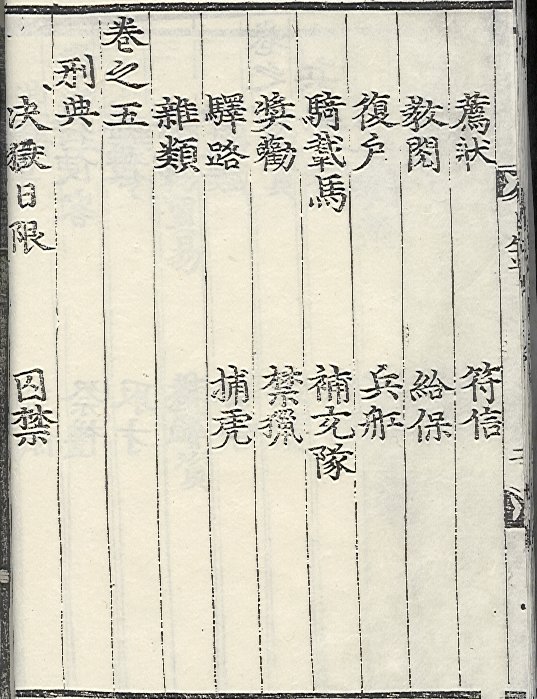 薦狀 符信
教閱 給保
復户 兵舡
騎載馬 補充隊
奬勸 禁獵
驛路 捕虎
雜類
卷之五
刑典
决獄日限 囚禁